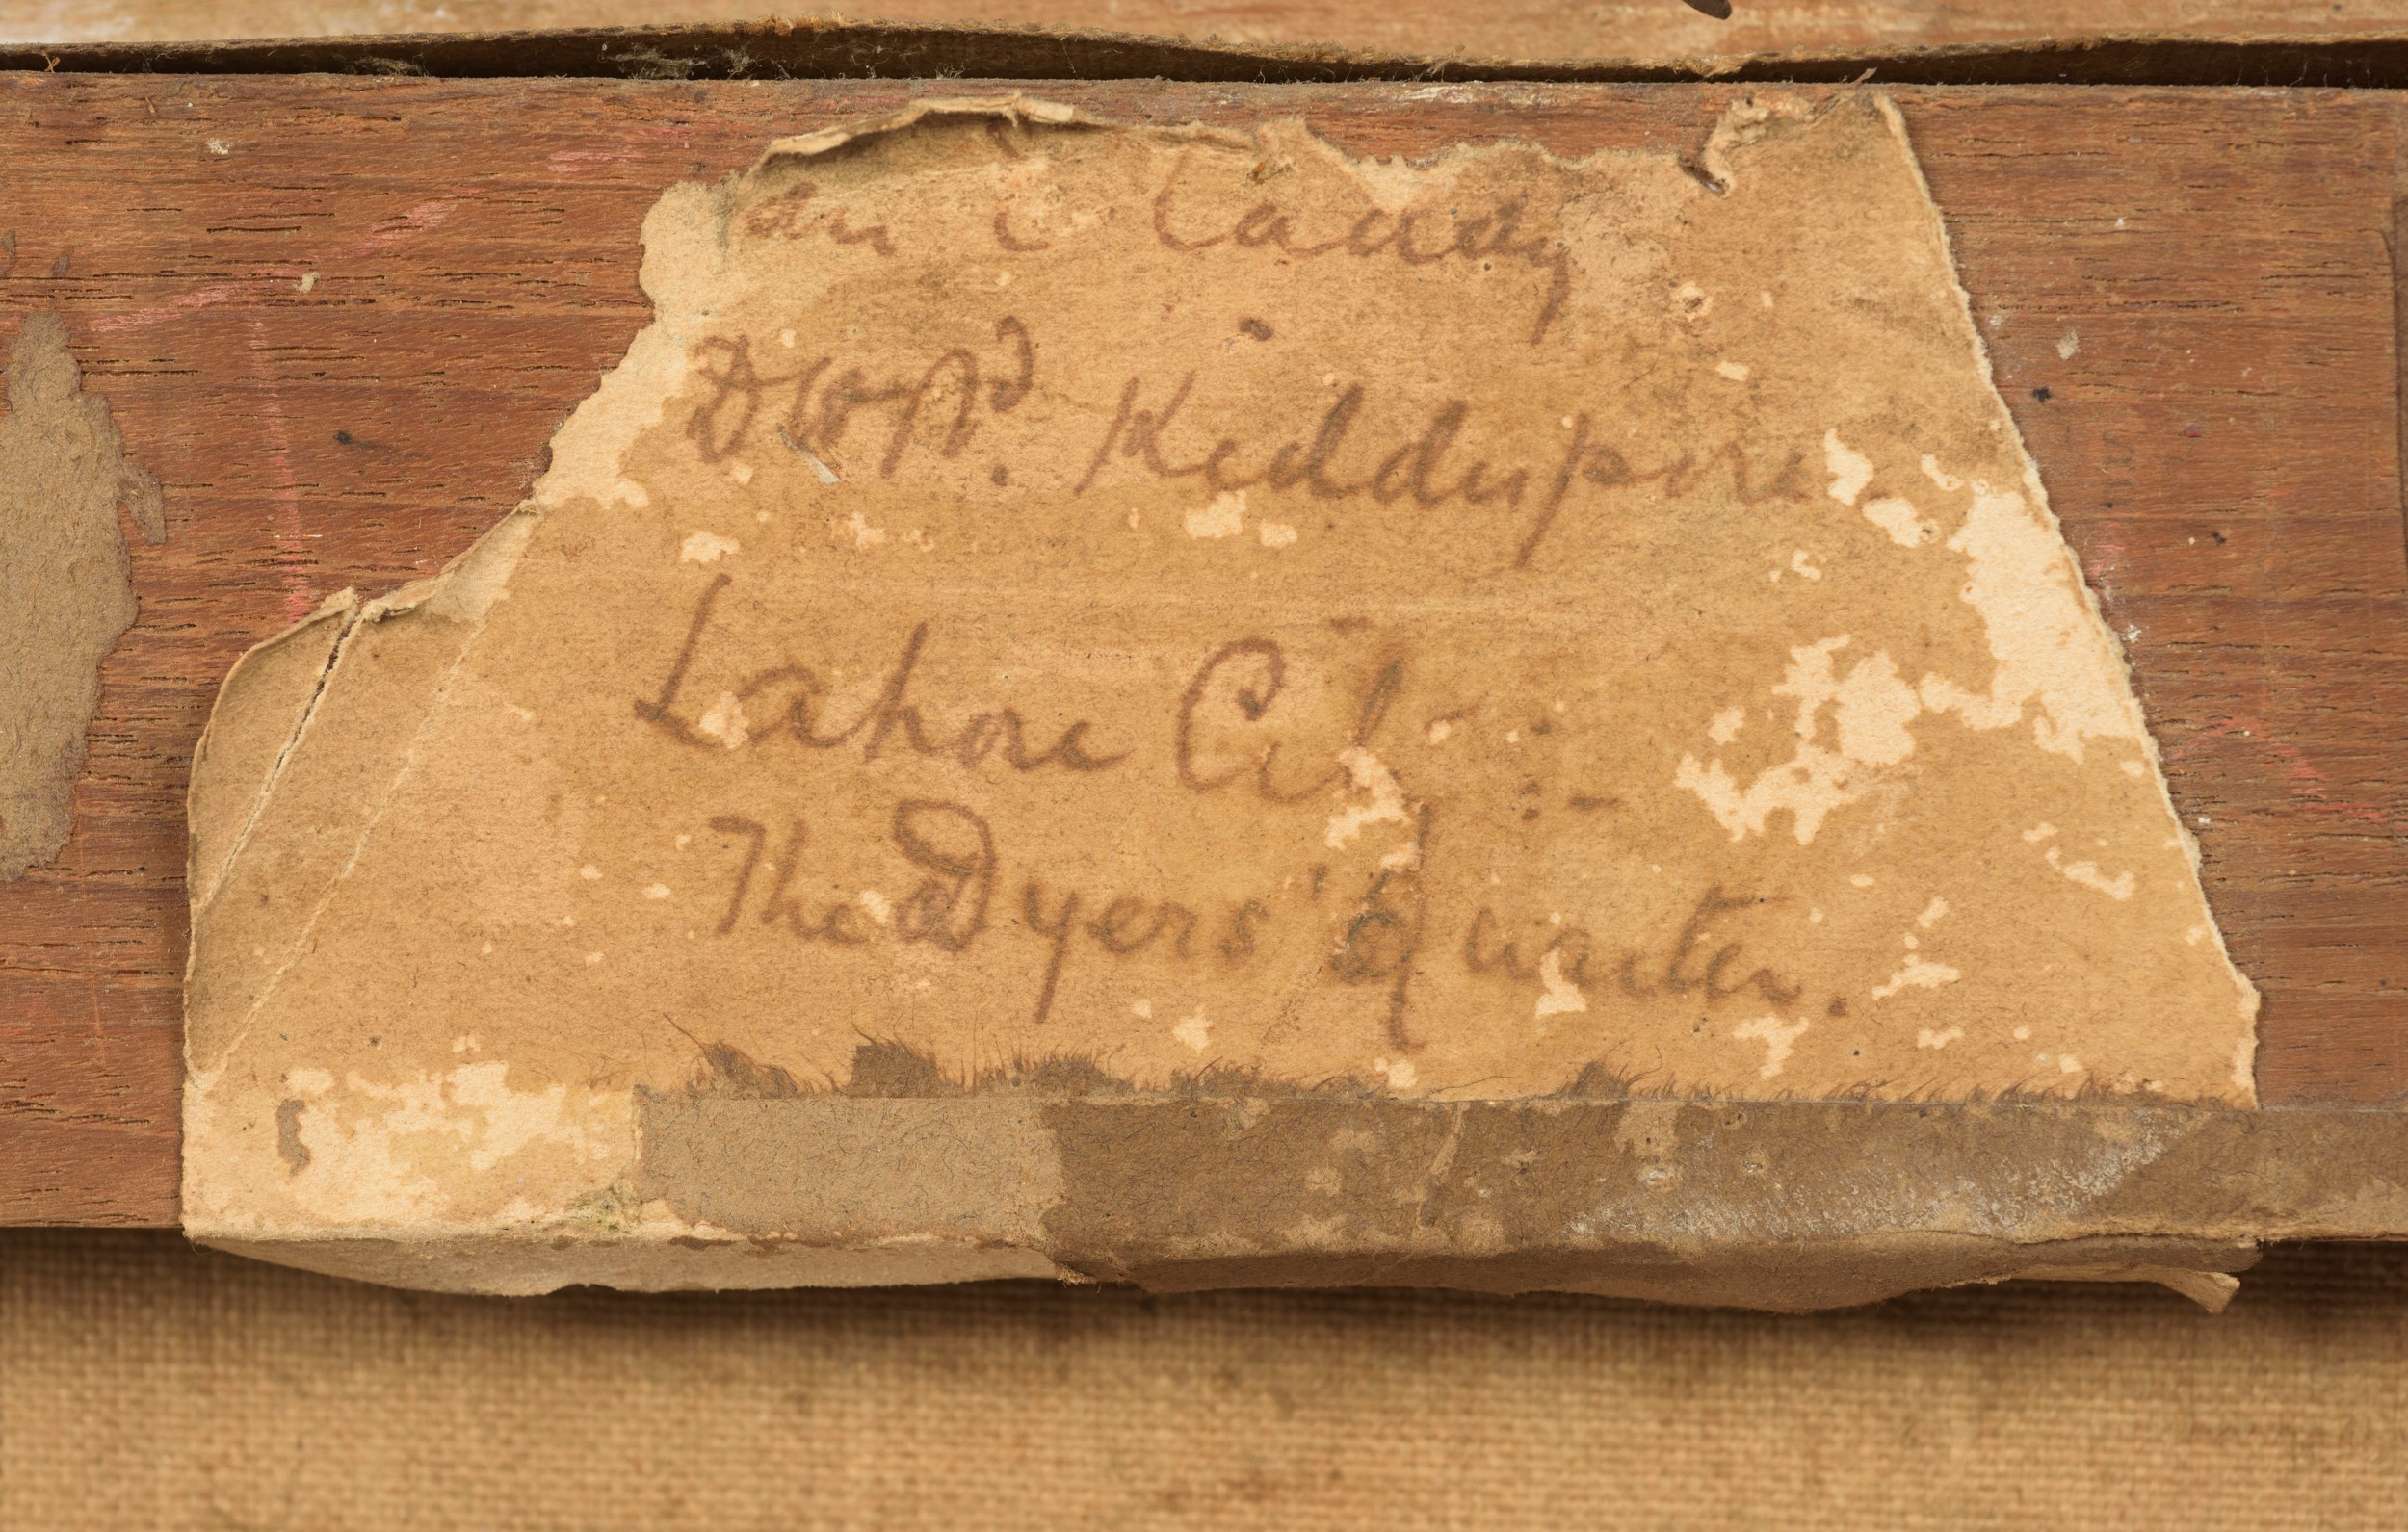 Caddy
D W Rd. Kidderpore
Lahore City :-
The Dyers' Quarter.